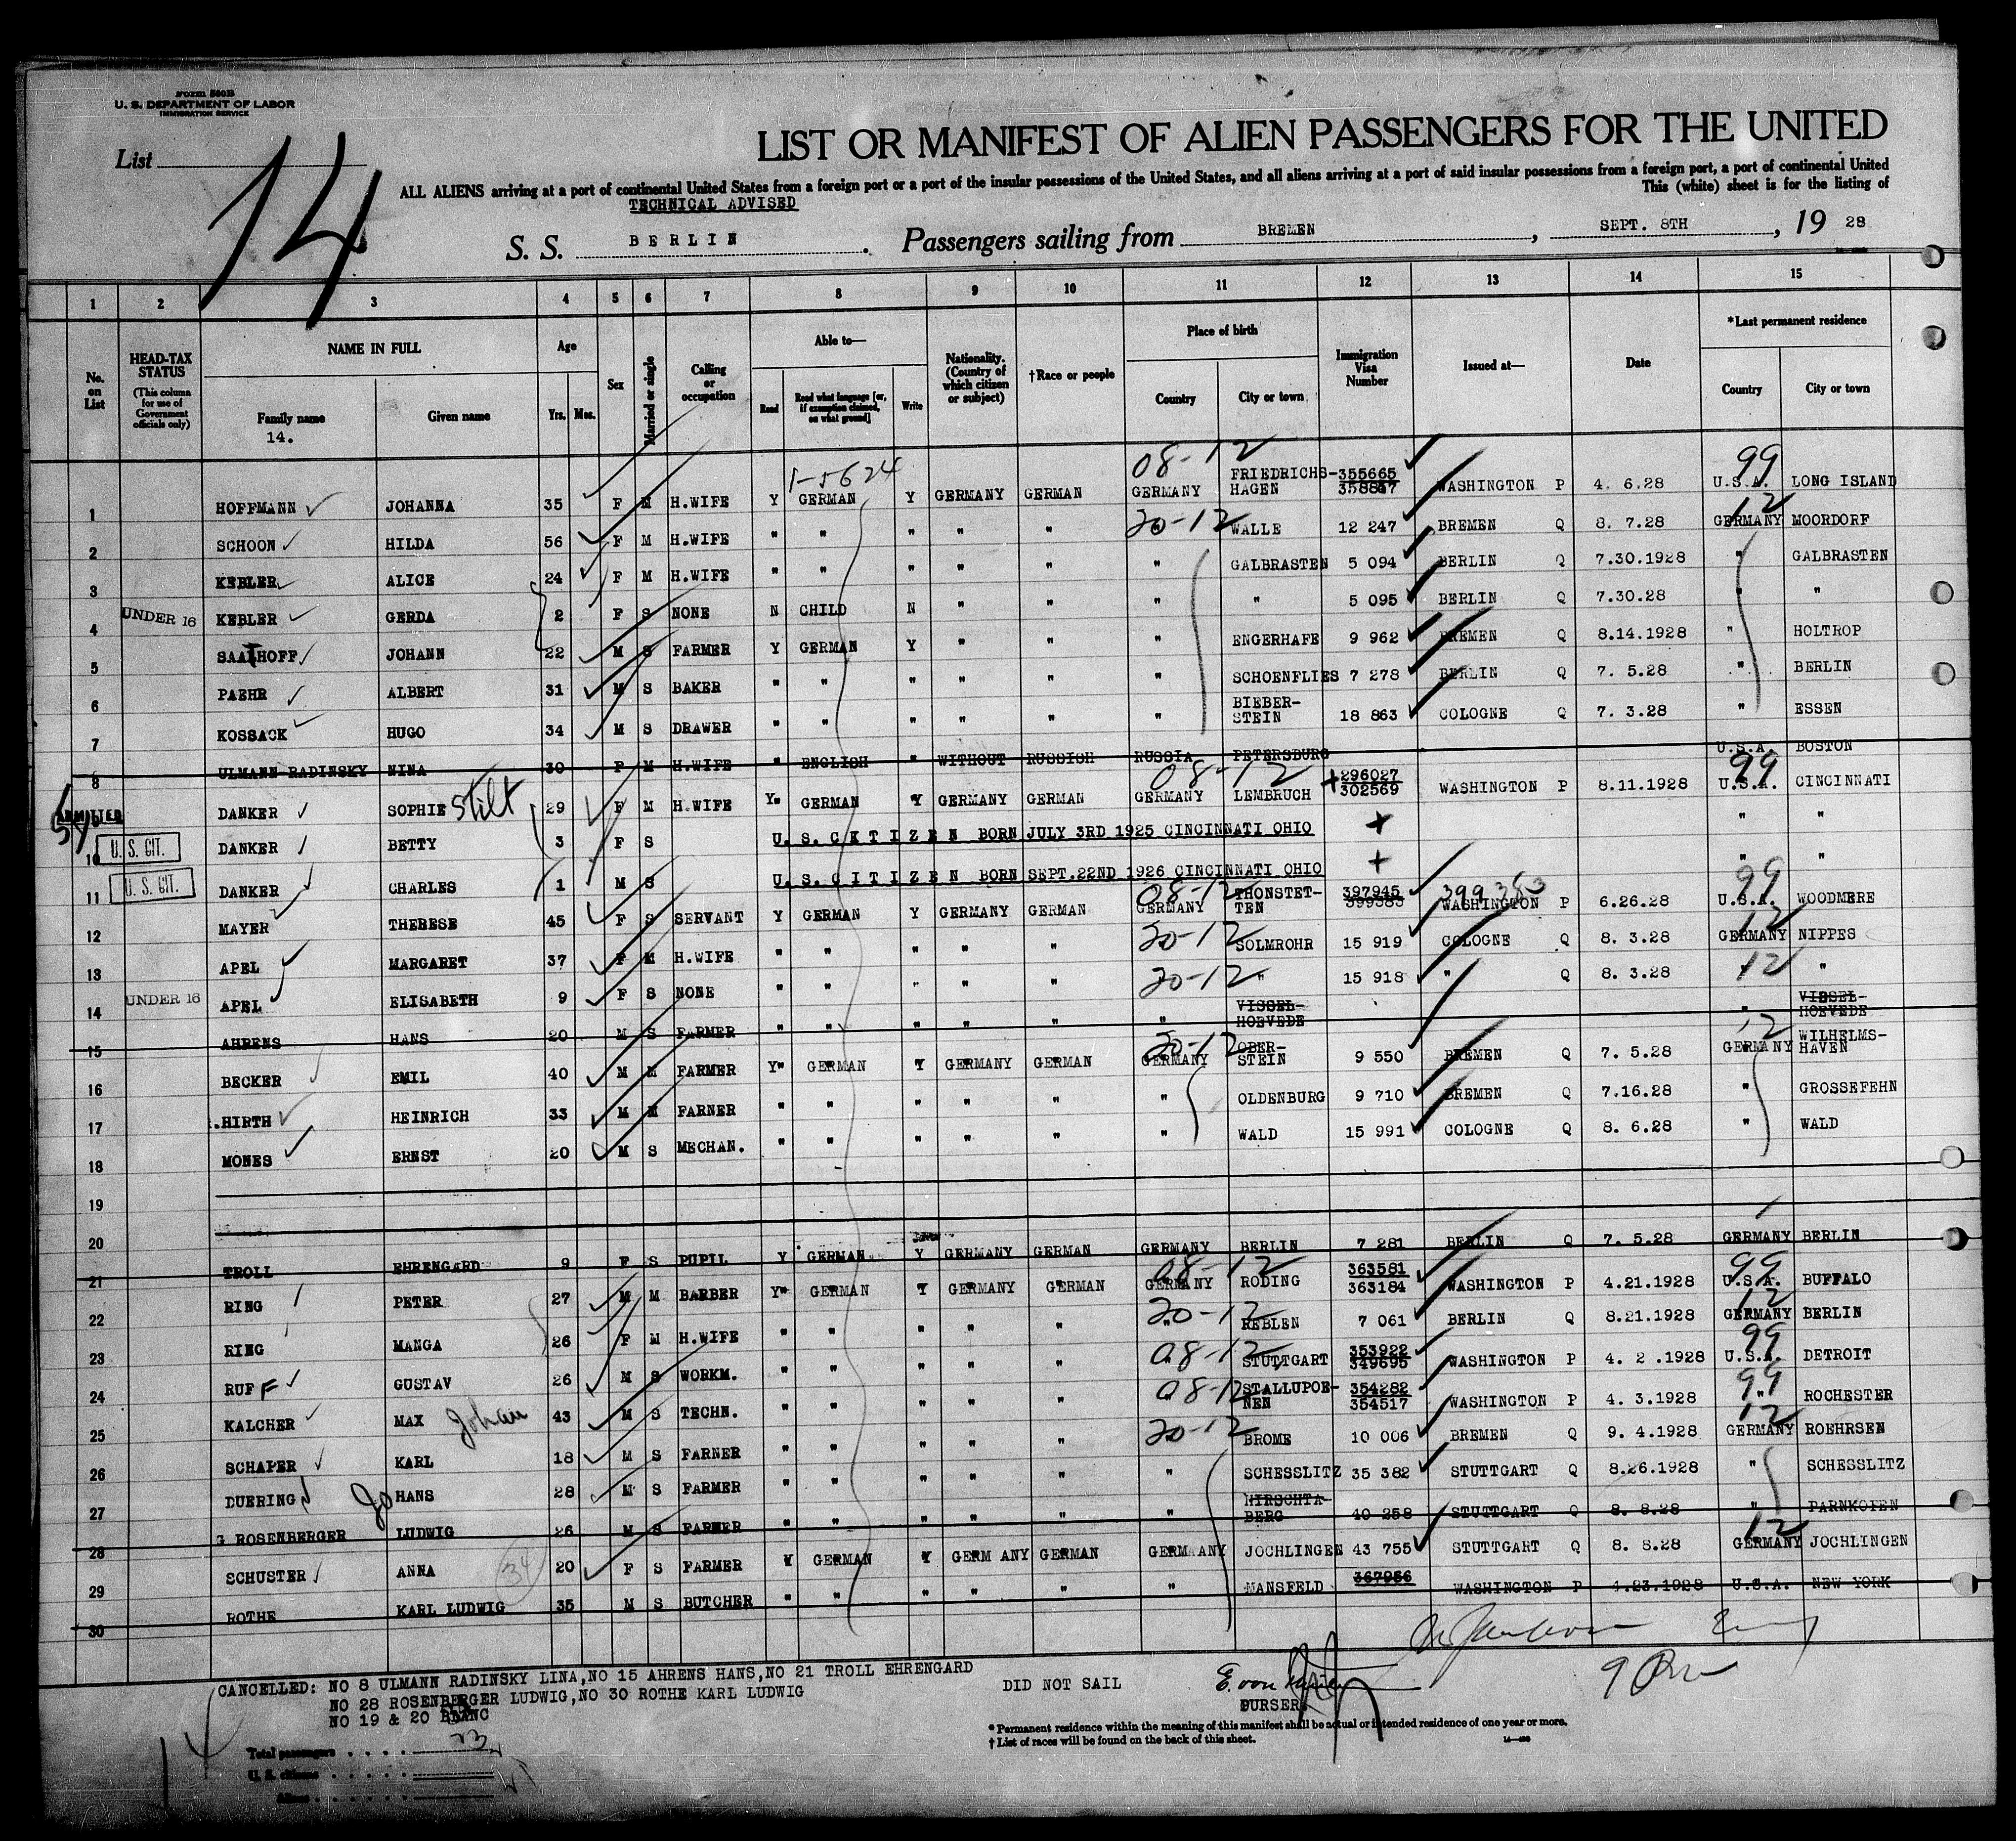 Form 500B
U. S. DEPARTMENT OF LABOR
IMMIGRATION SERVICE
List 14
LIST OR MANIFEST OF ALIEN PASSENGERS FOR THE UNITED
ALL ALIENS arriving at a port of continental United States from a foreign port or a port of the insular possessions of the United States, and all aliens arriving at a port of said insular possessions from a foreign port, a port of continental United
This (white) sheet is for the listing of
TECHNICAL ADVISED
S. S. BERLIN . Passengers sailing from BREMEN , SEPT. 8TH , 19 28
1 2 3 4 5 6 7 8 9 10 11 12 13 14 15
No. on List
HEAD-TAX STATUS (This column for use of Government officials only)
NAME IN FULL
Family name
14.
Given name
Age
Yrs. Mos.
Sex
Married or single
Calling or occupation
Able to—
Read
Read what language [or, if exemption claimed, on what ground]
Write
Nationality. (Country of which citizen or subject)
†Race or people
Place of birth
Country
City or town
Immigration Visa Number
Issued at—
Date
*Last permanent residence
Country
City or town
1-5624
08-12 99
1 HOFFMANN JOHANNA 35 F M H.WIFE Y GERMAN Y GERMANY GERMAN GERMANY FRIEDRICHS-HAGEN 355665 358867 WASHINGTON P 4. 6.28 U.S.A. LONG ISLAND
20-12 12
2 SCHOON HILDA 56 F M H.WIFE " " " " " WALLE 12 247 BREMEN Q 8. 7.28 GERMANY MOORDORF
3 KEBLER ALICE 24 F M H.WIFE " " " " " " GALBRASTEN 5 094 BERLIN Q 7.30.1928 " GALBRASTEN
4 UNDER 16 KEBLER GERDA 2 F S NONE N CHILD N " " " " 5 095 BERLIN Q 7.30.28 " "
5 SAATHOFF JOHANN 22 M S FARMER Y GERMAN Y " " " ENGERHAFE 9 962 BREMEN Q 8.14.1928 " HOLTROP
6 PAEHR ALBERT 31 M S BAKER " " " " " " SCHOENFLIES 7 278 BERLIN Q 7. 5.28 " BERLIN
7 KOSSACK HUGO 34 M S DRAWER " " " " " " BIEBER-STEIN 18 863 COLOGNE Q 7. 3.28 " ESSEN
8 ULMANN RADINSKY NINA 30 F M H.WIFE " ENGLISH " WITHOUT RUSSISH RUSSIA PETERSBURG U.S.A. BOSTON
ADMITTED
08-12 99
DANKER SOPHIE Stilt 29 F M H.WIFE Y" GERMAN Y GERMANY GERMAN GERMANY LEMBRUCH 296027 302569 WASHINGTON P 8.11.1928 U.S.A. CINCINNATI
10 U. S. CIT. DANKER BETTY 3 F S U.S. CKTIZEN BORN JULY 3RD 1925 CINCINNATI OHIO " "
11 U. S. CIT. DANKER CHARLES 1 M S U.S. CITIZEN BORN SEPT.22ND 1926 CINCINNATI OHIO " "
08-12 399383 99
12 MAYER THERESE 45 F S SERVANT Y GERMAN Y GERMANY GERMAN GERMANY THONSTET-TEN 397945 399383 WASHINGTON P 6.26.28 U.S.A. WOODMERE
20-12 12
13 APEL MARGARET 37 F M H.WIFE " " " " " SOLMROHR 15 919 COLOGNE Q 8. 3.28 GERMANY NIPPES
20-12 12
14 UNDER 16 APEL ELISABETH 9 F S NONE " " " " " " 15 918 " Q 8. 3.28 "
15 AHRENS HANS 20 M S FARMER " " " " " " VISSEL-HOEVEDE " VISSEL-HOEVEDE
20-12 12
16 BECKER EMIL 40 M M FARMER Y" GERMAN Y GERMANY GERMAN GERMANY OBER-STEIN 9 550 BREMEN Q 7. 5.28 GERMANY WILHELMS-HAVEN
17 HIRTH HEINRICH 33 M M FARNER " " " " " " OLDENBURG 9 710 BREMEN Q 7.16.28 " GROSSEFEHN
18 MONES ERNST 20 M S MECHAN. " " " " " " WALD 15 991 COLOGNE Q 8. 6.28 " WALD
19
20
21 TROLL EHRENGARD 9 F S PUPIL Y GERMAN Y GERMANY GERMAN GERMANY BERLIN 7 281 BERLIN Q 7. 5.28 GERMANY BERLIN
08-12 99
22 RING PETER 27 M M BARBER Y" GERMAN Y GERMANY GERMAN GERMANY RODING 363581 363184 WASHINGTON P 4.21.1928 U.S.A. BUFFALO
20-12 12
23 RING MANGA 26 F M H.WIFE " " " " " " REBLEN 7 061 BERLIN Q 8.21.1928 GERMANY BERLIN
08-12 99
24 RUFF GUSTAV 26 M S WORKM. " " " " " STUTTGART 353922 349695 WASHINGTON P 4. 2 .1928 U.S.A. DETROIT
08-12 99
25 KALCHER MAX Johan 43 M S TECHN. " " " " " STALLUPOE-NEN 354282 354517 WASHINGTON P 4. 3.1928 " ROCHESTER
20-12 12
26 SCHAPER KARL 18 M S FARNER " " " " " BROME 10 006 BREMEN Q 9. 4.1928 GERMANY ROEHRSEN
27 DUERING Jo HANS 28 M S FARMER " " " " " " SCHESSLITZ 35 382 STUTTGART Q 8.26.1928 " SCHESSLITZ
28 G ROSENBERGER LUDWIG 26 M S FARNER " " " " " " HIRSCHTA-BERG 40 258 STUTTGART Q 8. 8.28 " PARNKOFEN
12
29 SCHUSTER ANNA 34 20 F S FARMER Y GERMAN Y GERM ANY GERMAN GERMANY JOCHLINGEN 43 755 STUTTGART Q 8. 8.28 GERMANY JOCHLINGEN
30 ROTHE KARL LUDWIG 35 M S BUTCHER " " " " " " MANSFELD 367966 WASHINGTON P 4.23.1928 U.S.A. NEW YORK
CANCELLED: NO 8 ULMANN RADINSKY LINA,NO 15 AHRENS HANS,NO 21 TROLL EHRENGARD DID NOT SAIL
NO 28 ROSENBERGER LUDWIG,NO 30 ROTHE KARL LUDWIG
NO 19 & 20 BLANC
PURSER
Total passengers 23
U. S. citizens
Aliens
* Permanent residence within the meaning of this manifest shall be actual or intended residence of one year or more.
† List of races will be found on the back of this sheet.